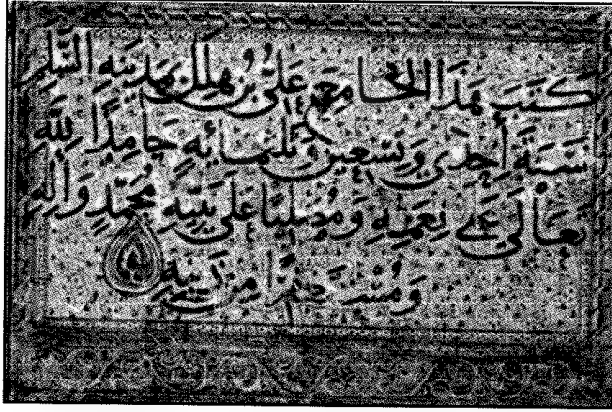 كَتَبَ هَذَا الجامِعَ عَلِيُّ بْنُ هِلَلٍ بِمَدِينَةِ السَّلَمِ
سَنَةَ إِحْدَى وَتِسْعِينَ وَثَلَثِمائَةٍ حَامِدًا لِلَّهِ
تَعَالَى عَلَى نِعَمِهِ وَمُصَلِّيًا عَلَى نَبِيِّهِ مُحَمَّدٍ وَآلِهِ
وَمُسْتَغْفِرًا مِنْ ذَنْبِهِ